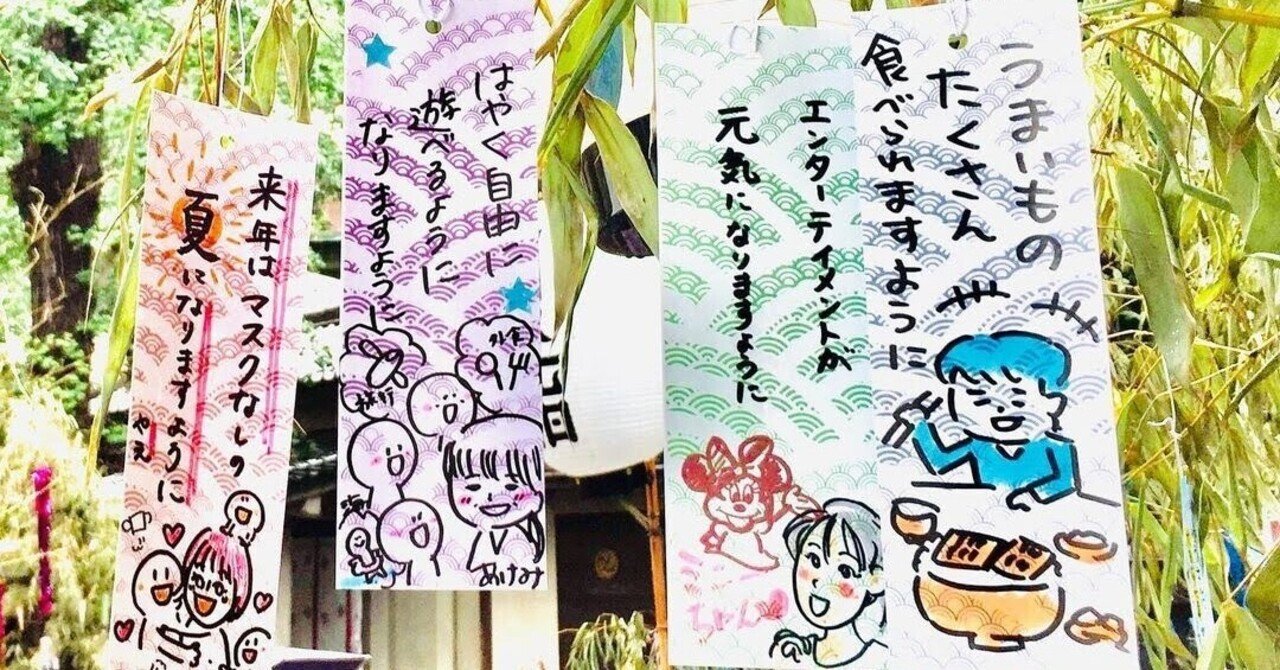 うまいもの
たくさん
食べられますように
エンターテイメントが
元気になりますように
ちゃん
はやく自由に
遊べるように
なりますように
外食
旅行
あけみ
来年は
マスクなしの
夏になりますように
やえ